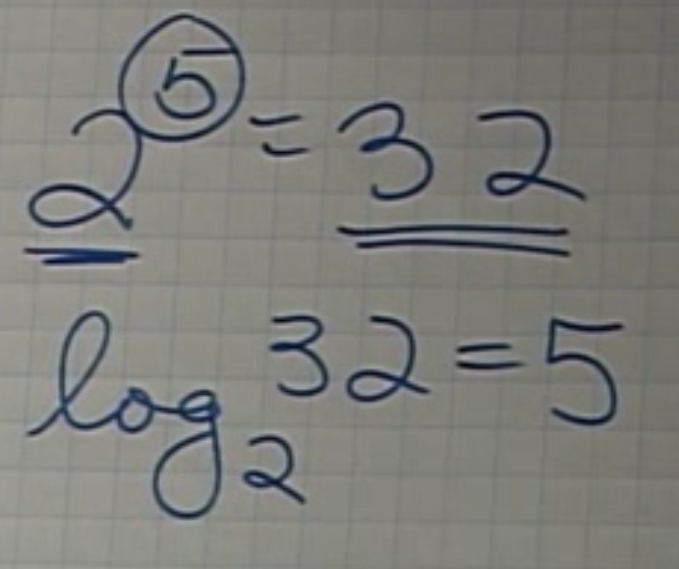 2⁵ = 32
log₂ 32 = 5